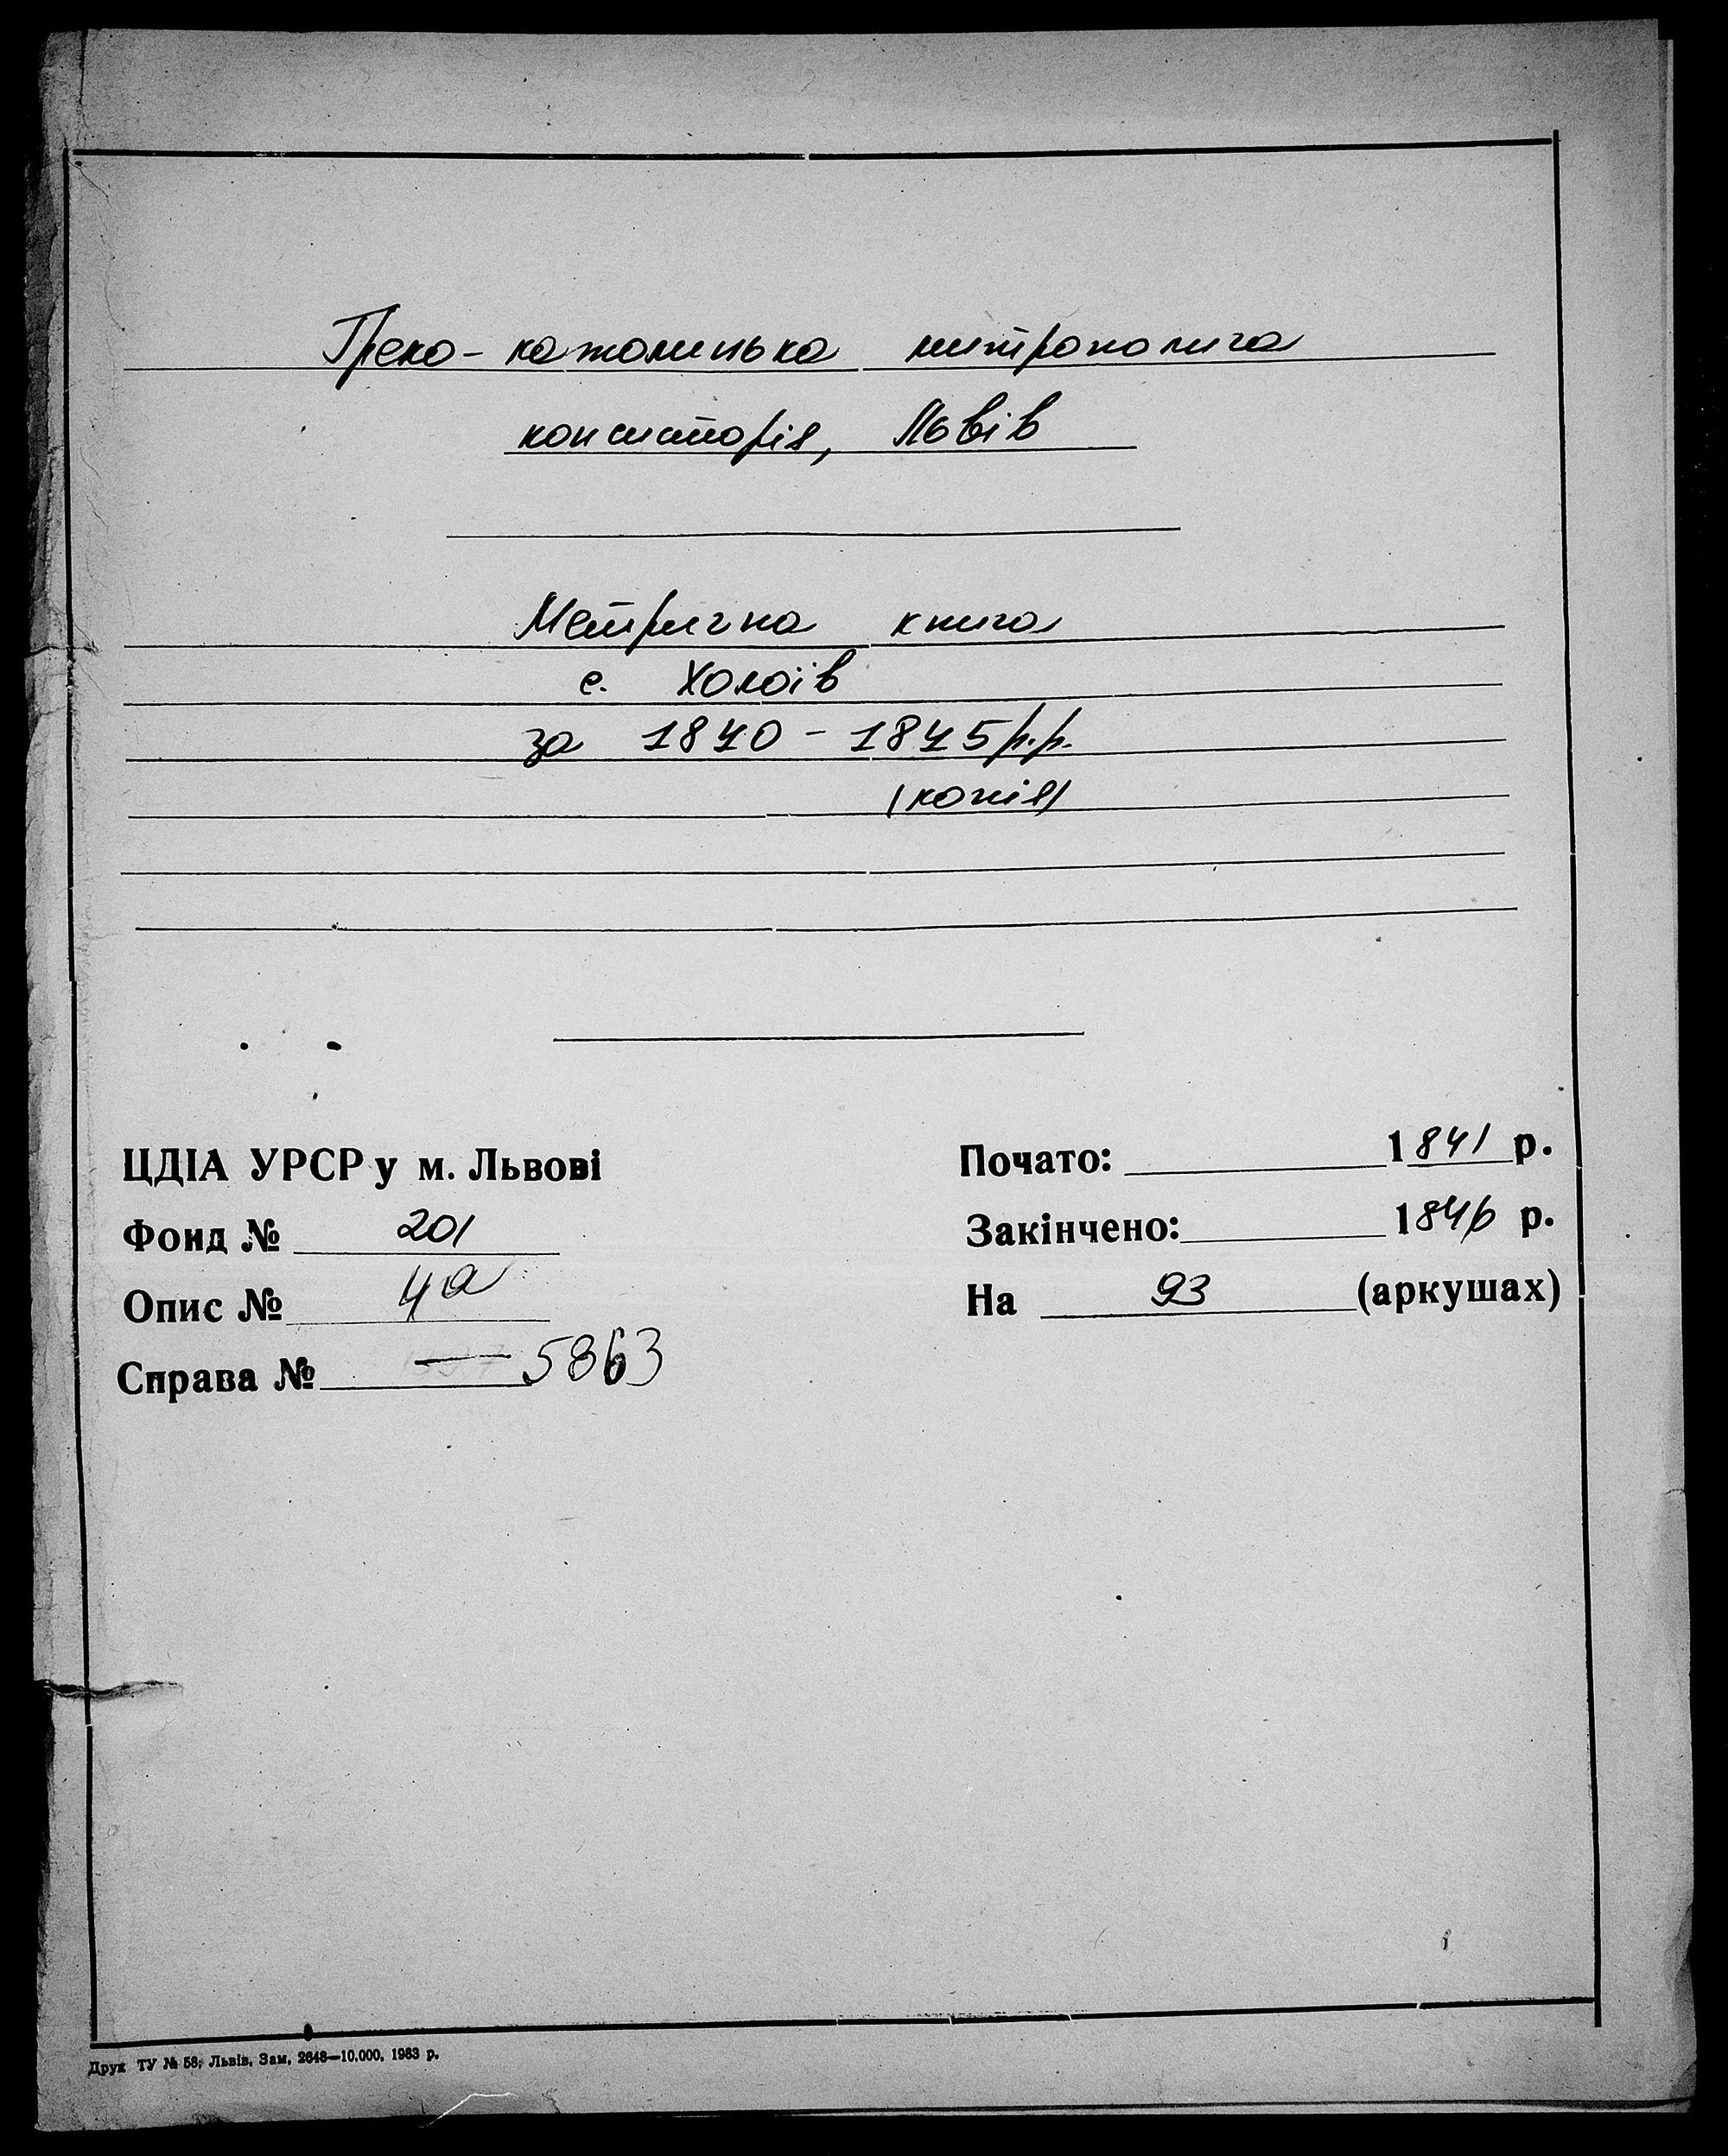 Греко-католицька митрополича
консисторія, Львів
Метрична книга
с. Холоїв
за 1840-1845 р.р.
(копія)
ЦДІА УРСР у м. Львові
Фонд № 201
Опис № 4а
Справа № 5863
Почато: 1841 р.
Закінчено: 1846 р.
На 93 (аркушах)
Друк ТУ № 58; Львів, Зам, 2648—10.000, 1983 р.